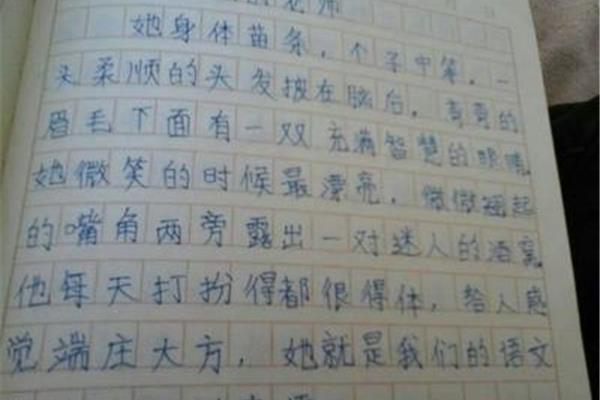 的老师
她身体苗条，个子中等，一
头柔顺的头发披在脑后，弯弯的
眉毛下面有一双充满智慧的眼睛
她微笑的时候最漂亮，微微翘起
的嘴角两旁露出一对迷人的酒窝
他每天打扮得都很得体，给人感
觉端庄大方，她就是我们的语文